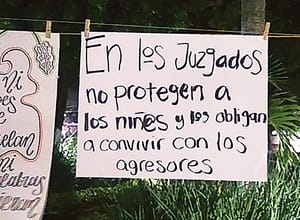 Ni
uelan
En los Juzgados
no protegen a
los niñes y los obligan
a convivir con los
agresores